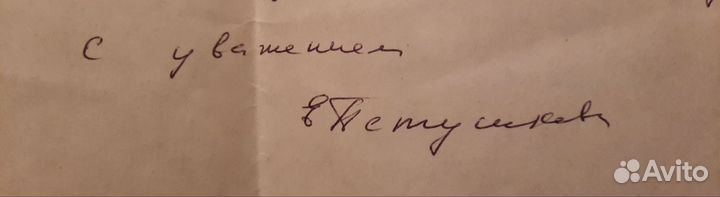 с уважением
Е Петушкова
Avito